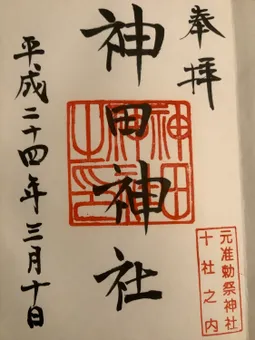 奉拝
神田神社
神田神社之印
元准勅祭神社
十社之内
平成二十四年三月十日